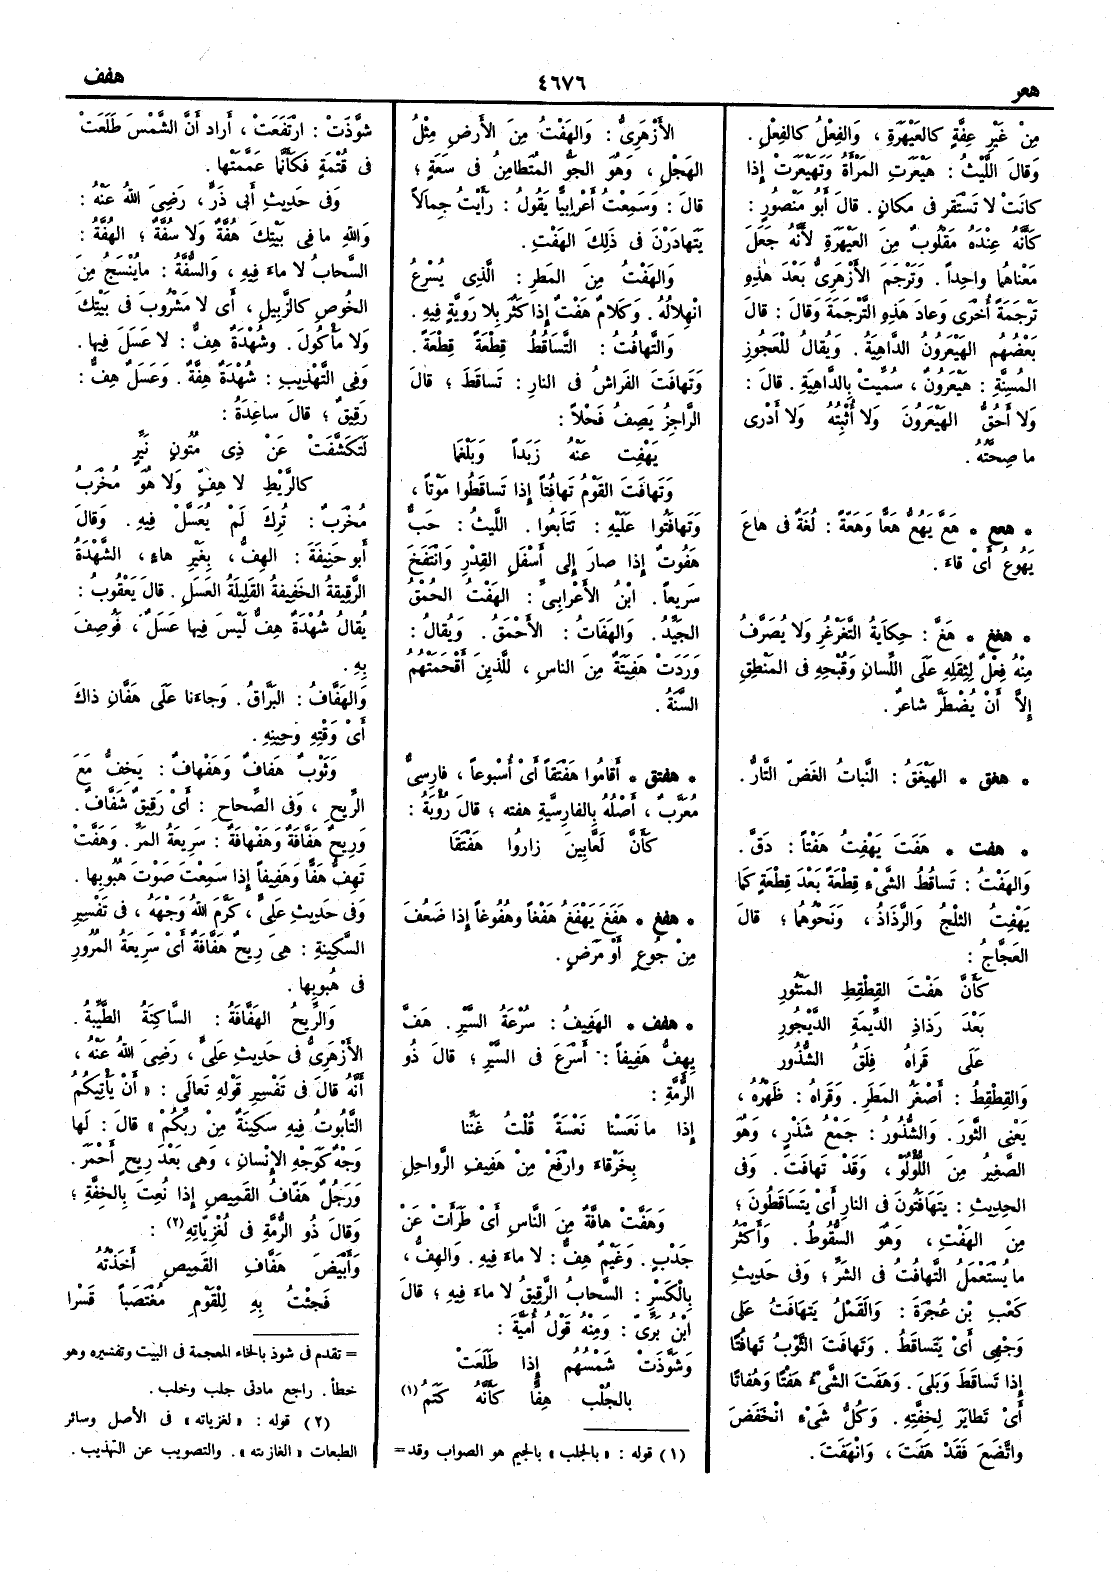 هعر
٤٦٧٦
هفف
مِنْ غَيْرِ عِفَّةٍ كالعَيْهَرَةِ ، وَالفِعْلُ كالفِعْلِ .
وَقالَ اللَّيْثُ : هَيْعَرَتِ المَرْأَةُ وَتَهَيْعَرَتْ إذا
كانَتْ لا تَسْتَقِر فى مَكانٍ . قالَ أَبُو مَنْصُورٍ :
كَأَنَّهُ عِنْدَه مَقْلُوبٌ مِنَ العَيْهَرَةِ لأَنَّهُ جَعَلَ
مَعْناهُما واحِداً . وَتَرْجَمَ الأَزْهَرِىُّ بَعْدَ هَذِهِ
تَرْجَمَةً أُخْرَى وَعادَ هَذِهِ التَّرْجَمَةَ وَقالَ : قالَ
بَعْضُهُم الهَيْعَرُونُ الدَّاهِيَةُ . وَيُقالُ لِلْعَجُوزِ
المُسِنَّةِ : هَيْعَرُونٌ ، سُمِّيَتْ بِالدَّاهِيَةِ . قالَ :
وَلا أَحُقُّ الهَيْعَرُونَ وَلا أُثْبِتُهُ وَلا أَدْرِى
ما صِحَّتُهُ .
• هعع • هَعَّ يَهُعُّ هَعًّا وَهَعَّةً : لُغَةٌ فى هاعَ
يَهُوعُ أَىْ قاءَ .
• هغغ • هَغَّ : حِكايَةُ التَّغَرْغُرِ وَلا يُصَرَّفُ
مِنْهُ فِعْلٌ لِثِقَلِهِ عَلَى اللِّسانِ وَقُبْحِهِ فى المَنْطِقِ
إِلاَّ أَنْ يُضْطَرَّ شاعِرٌ .
• هغق • الهَيْغَقُ : النَّباتُ الغَضّ التَّارُّ .
• هفت • هَفَتَ يَهْفِتُ هَفْتاً : دَقَّ .
وَالهَفْتُ : تَساقُطُ الشَّىْءِ قِطْعَةً بَعْدَ قِطْعَةٍ كَما
يَهْفِتُ الثلْجُ وَالرَّذاذُ ، وَنَحْوُهُما ؛ قالَ
العَجَّاجُ :
كَأَنَّ هَفْتَ القِطْقِطِ المَنْثُورِ
بَعْدَ رَذاذِ الدِّيمَةِ الدَّيْجُورِ
عَلَى قَراهُ فِلَقُ الشُّذُورِ
وَالقِطْقِطُ : أَصْغَرُ المَطَرِ . وَقَراهُ : ظَهْرُهُ ،
يَعْنِى الثَّوْرَ . وَالشُّذُورُ : جَمْعُ شَذْرٍ ، وَهُوَ
الصَّغِيرُ مِنَ اللُّؤْلُؤِ ، وَقَدْ تَهافَتَ . وَفى
الحَدِيثِ : يَتَهافَتُونَ فى النارِ أَىْ يَتَساقَطُونَ ؛
مِنَ الهَفْتِ ، وَهُوَ السُّقُوطُ . وَأَكْثَرُ
ما يُسْتَعْمَلُ التَّهافُتُ فى الشَرِّ ؛ وَفى حَدِيثِ
كَعْبِ بْنِ عُجْرَةَ : وَالقَمْلُ يَتَهافَتُ عَلى
وَجْهِى أَىْ يَتَساقَطُ . وَتَهافَتَ الثَّوْبُ تَهافُتًا
إِذا تَساقَطَ وَبَلِىَ . وَهَفَتَ الشَّىْءُ هَفْتًا وَهُفاتًا
أَىْ تَطايَرَ لِخِفَّتِهِ . وَكُلُّ شَىْءٍ انْخَفَضَ
واتَّضَعَ فَقَدْ هَفَتَ ، وَانْهَفَتَ .
الأَزْهَرِىُّ : وَالهَفْتُ مِنَ الأَرْضِ مِثْلُ
الهَجْلِ ، وَهُوَ الجَوُّ المُتَطامِنُ فى سَعَةٍ ؛
قالَ : وَسَمِعْتُ أَعْرابِيًّا يَقُولُ : رَأَيْتُ جِمالاً
يَتَهادَرْنَ فى ذَلِكَ الهَفْتِ .
وَالهَفْتُ مِنَ المَطَرِ : الَّذِى يُسْرِعُ
انْهِلالُهُ . وَكَلامٌ هَفْتٌ إذا كَثُرَ بِلا رَوِيَّةٍ فِيهِ .
وَالتَّهافُتُ : التَّساقُطُ قِطْعَةً قِطْعَةً .
وَتَهافَتَ الفَراشُ فى النارِ : تَساقَطَ ؛ قالَ
الرَّاجِزُ يَصِفُ فَحْلاً :
يَهْفِت عَنْهُ زَبَداً وَبَلْغَما
وَتَهافَتَ القَوْمُ تَهافُتاً إِذا تَساقَطُوا مَوْتاً ،
وَتَهافَتُوا عَلَيْهِ : تَتابَعُوا . اللَّيْثُ : حَبٌّ
هَفُوتٌ إِذا صارَ إِلى أَسْفَلِ القِدْرِ وَانْتَفَخَ
سَرِيعاً . ابْنُ الأَعْرابِىِّ : الهَفْتُ الحُمْقُ
الجَيِّدُ . وَالهَفَاتُ : الأَحْمَقُ . وَيُقالُ :
وَرَدَتْ هَفِيَتَةٌ مِنَ الناسِ ، لِلَّذِينَ أَقْحَمَتْهُم
السَّنَةُ .
• هفتق • أَقامُوا هَفْتَقاً أَىْ أُسْبُوعاً ، فارِسِىٌّ
مُعَرَّبٌ ، أَصْلُهُ بِالفارِسِيَّةِ هفته ؛ قالَ رُؤْبَةُ :
كَأَنَّ لَعَّابِينَ زاروا هَفْتَقَا
• هفغ • هَفَغَ يَهْفَغُ هَفْغاً وَهُفُوغاً إِذا ضَعُفَ
مِنْ جُوعٍ أَوْ مَرَضٍ .
• هفف • الهَفِيفُ : سُرْعَةُ السَّيْرِ . هَفَّ
يَهِفُّ هَفِيفاً : أَسْرَعَ فى السَّيْرِ ؛ قالَ ذُو
الرُّمَّةِ :
إِذا ما نَعَسْنا نَعْسَةً قُلْتُ غَنِّنا
بِخَرْقاءَ وارْفَعْ مِنْ هَفِيفِ الرَّواحِلِ
وَهَفَّتْ هافَّةٌ مِنَ النَّاسِ أَىْ طَرَأَتْ عَنْ
جَدْبٍ . وَغَيْمٌ هِفٌّ : لا ماءَ فِيهِ . وَالهِفُّ ،
بِالْكَسْرِ : السَّحابُ الرَّقِيقُ لا ماءَ فِيهِ ؛ قالَ
ابْنُ بَرِّىّ : وَمِنْهُ قَوْلُ أُمَيَّةَ :
وَشَوَّذَتْ شَمْسُهُم إِذا طَلَعَتْ
بِالجُلْبِ هِفًّا كَأَنَّهُ كَتَمُ (١)
(١) قوله : « بالجلب » بالجيم هو الصواب وقد =
شوَّذَتْ : ارْتَفَعَتْ ، أَراد أَنَّ الشَّمْسَ طَلَعَتْ
فى قُتْمَةٍ فَكَأَنَّما عَمَّمَتْها .
وَفى حَدِيثِ أَبِى ذَرٍّ ، رَضِىَ اللهُ عَنْهُ :
وَاللهِ ما فى بَيْتِكَ هُفَّةٌ وَلا سُفَّةٌ ؛ الهُفَّةُ :
السَّحابُ لا ماءَ فِيهِ ، وَالسُّفَّةُ : ما يُنْسَجُ مِنَ
الخُوصِ كالزَّبِيلِ ، أَى لا مَشْرُوبَ فى بَيْتِكَ
وَلا مَأْكُولَ . وَشُهْدَةٌ هِفٌّ : لا عَسَلَ فِيها .
وَفِى التَّهْذِيبِ : شُهْدَةٌ هِفَّةٌ . وَعَسَلٌ هِفٌّ :
رَقِيقٌ ؛ قالَ ساعِدَةُ :
لَتَكَشَّفَتْ عَنْ ذِى مُتُونٍ نَيِّرٍ
كالرَّيْطِ لا هِفٍّ وَلا هُوَ مُخْرَبُ
مُخْرَبٌ : تُرِكَ لَمْ يُعَسَّلْ فِيهِ . وَقالَ
أَبو حَنِيفَةَ : الهِفُّ ، بِغَيْرِ هاءٍ ، الشَّهْدَةُ
الرَّقِيقَةُ الخَفِيفَةُ القَلِيلَةُ العَسَلِ . قالَ يَعْقُوبُ :
يُقالُ شُهْدَةٌ هِفٌّ لَيْسَ فِيها عَسَلٌ ، فَوُصِفَ
بِهِ .
وَالهَفَّافُ : البَرَّاقُ . وَجاءَنا عَلَى هَفَّانِ ذاكَ
أَىْ وَقْتِهِ وَحِينِهِ .
وَثَوْبٌ هَفافٌ وَهَفْهافٌ : يَخِفُّ مَعَ
الرِّيحِ ، وَفى الصِّحاحِ : أَىْ رَقِيقٌ شَفَّافٌ .
وَرِيحٌ هَفَّافَةٌ وَهَفْهافَةٌ : سَرِيعَةُ المَرِّ . وَهَفَّتْ
تَهِفُّ هَفًّا وَهَفِيفاً إِذا سَمِعْتَ صَوْتَ هُبُوبِها .
وَفى حَدِيثِ عَلِىٍّ ، كَرَّمَ اللهُ وَجْهَهُ ، فى تَفْسِيرِ
السَّكِينَةِ : هِىَ رِيحٌ هَفَّافَةٌ أَىْ سَرِيعَةُ المُرُورِ
فى هُبُوبِها .
وَالرِّيحُ الهَفَّافَةُ : السَّاكِنَةُ الطَّيِّبَةُ .
الأَزْهَرِىُّ فى حَدِيثِ عَلِىٍّ ، رَضِىَ اللهُ عَنْهُ ،
أَنَّهُ قالَ فى تَفْسِيرِ قَوْلِهِ تَعالَى : « أَنْ يَأْتِيَكُمُ
التَّابُوتُ فِيهِ سَكِينَةٌ مِنْ رَبِّكُمْ » قالَ : لَها
وَجْهٌ كَوَجْهِ الإِنْسانِ ، وَهِى بَعْدَ رِيحٍ أَحْمَرَ .
وَرَجُلٌ هَفَّافُ القَمِيصِ إِذا نُعِتَ بِالخِفَّةِ ؛
وَقالَ ذُو الرُّمَّةِ فى لُغْزِيَّاتِهِ (٢) :
وَأَبْيَضَ هَفَّافِ القَمِيصِ أَخَذْتُهُ
فَجِئْتُ بِهِ لِلْقَوْمِ مُغْتَصَباً قَسْرا
= تقدم فى شوذ بالخاء المعجمة فى البيت وتفسيره وهو
خطأ . راجع مادتى جلب وخلب .
(٢) قوله : « لغزياته » فى الأصل وسائر
الطبعات « الغازيته » . والتصويب عن التهذيب .